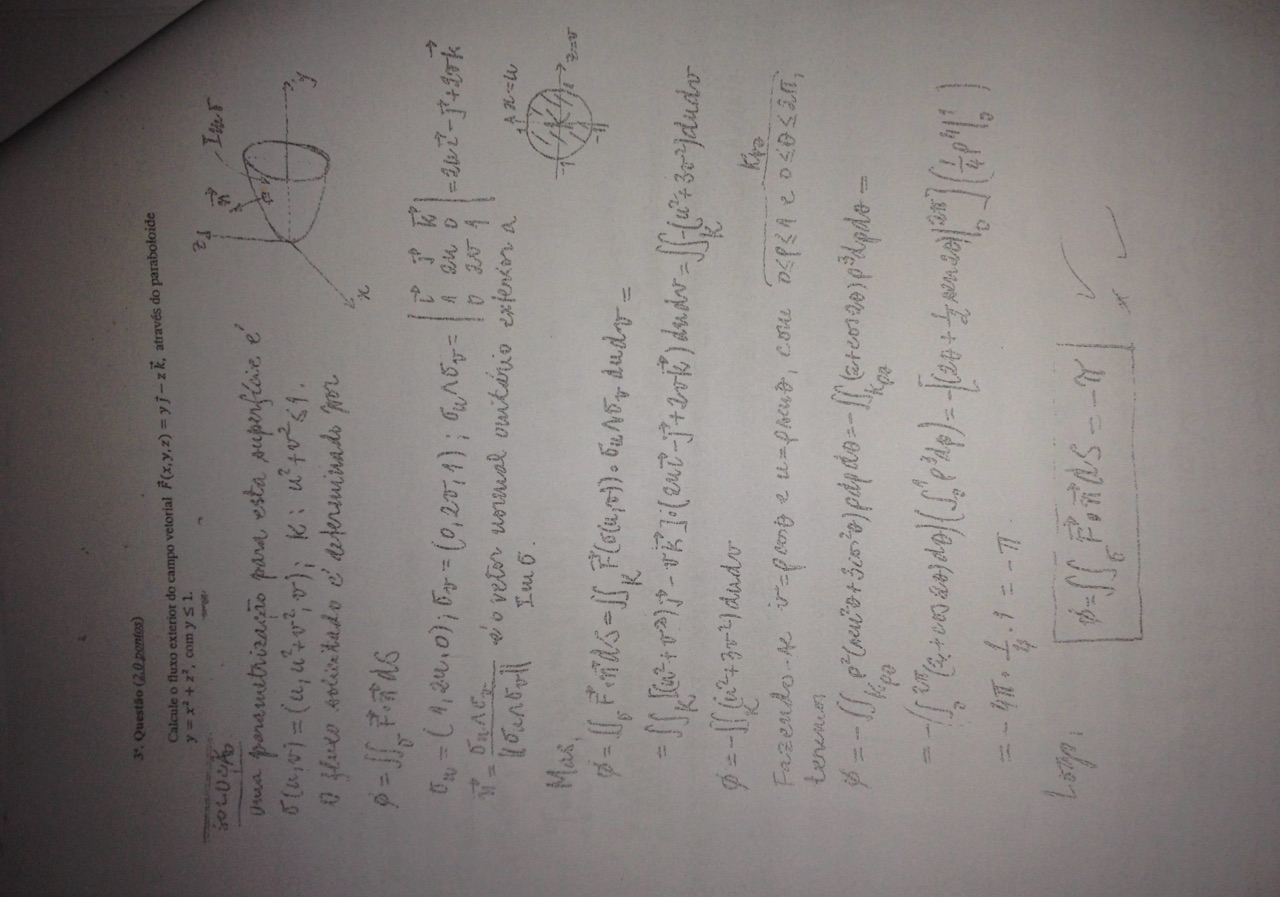 3ª. Questão (2,0 pontos)
Calcule o fluxo exterior do campo vetorial F⃗(x,y,z) = y j⃗ − z k⃗, através do paraboloide
y = x² + z², com y ≤ 1.
SOLUÇÃO
Uma parametrização para esta superfície é
σ(u,v) = (u, u²+v², v); K: u²+v² ≤ 1.
O fluxo solicitado é determinado por
z
n⃗
Im σ
y
x
φ = ∬_σ F⃗·n⃗ dS
σ_u = (1, 2u, 0); σ_v = (0, 2v, 1); σ_u∧σ_v = | i⃗ j⃗ k⃗ ; 1 2u 0 ; 0 2v 1 | = 2u i⃗ − j⃗ + 2v k⃗
n⃗ = σ_u∧σ_v / ||σ_u∧σ_v|| é o vetor normal unitário exterior a
Im σ.
x=u
1
-1 K 1 z=v
-1
Mas,
φ = ∬_σ F⃗·n⃗ dS = ∬_K F⃗(σ(u,v)) · σ_u∧σ_v du dv =
= ∬_K [(u²+v²) j⃗ − v k⃗]·(2u i⃗ − j⃗ + 2v k⃗) du dv = ∬_K −(u²+3v²) du dv
φ = −∬_K (u²+3v²) du dv
K_ρθ
Fazendo-se v = ρcosθ e u = ρsenθ, com 0≤ρ≤1 e 0≤θ≤2π,
teremos
φ = −∬_{K_ρθ} ρ²(sen²θ+3cos²θ) ρ dρ dθ = −∬_{K_ρθ} (2+cos2θ) ρ³ dρ dθ =
= −(∫_0^{2π} (2+cos2θ) dθ)(∫_0^1 ρ³ dρ) = −[(2θ + 1/2 sen2θ)|_0^{2π}] (1/4 ρ⁴|_0^1)
= −4π · 1/4 · 1 = −π
Logo,
φ = ∬_σ F⃗·n⃗ dS = −π